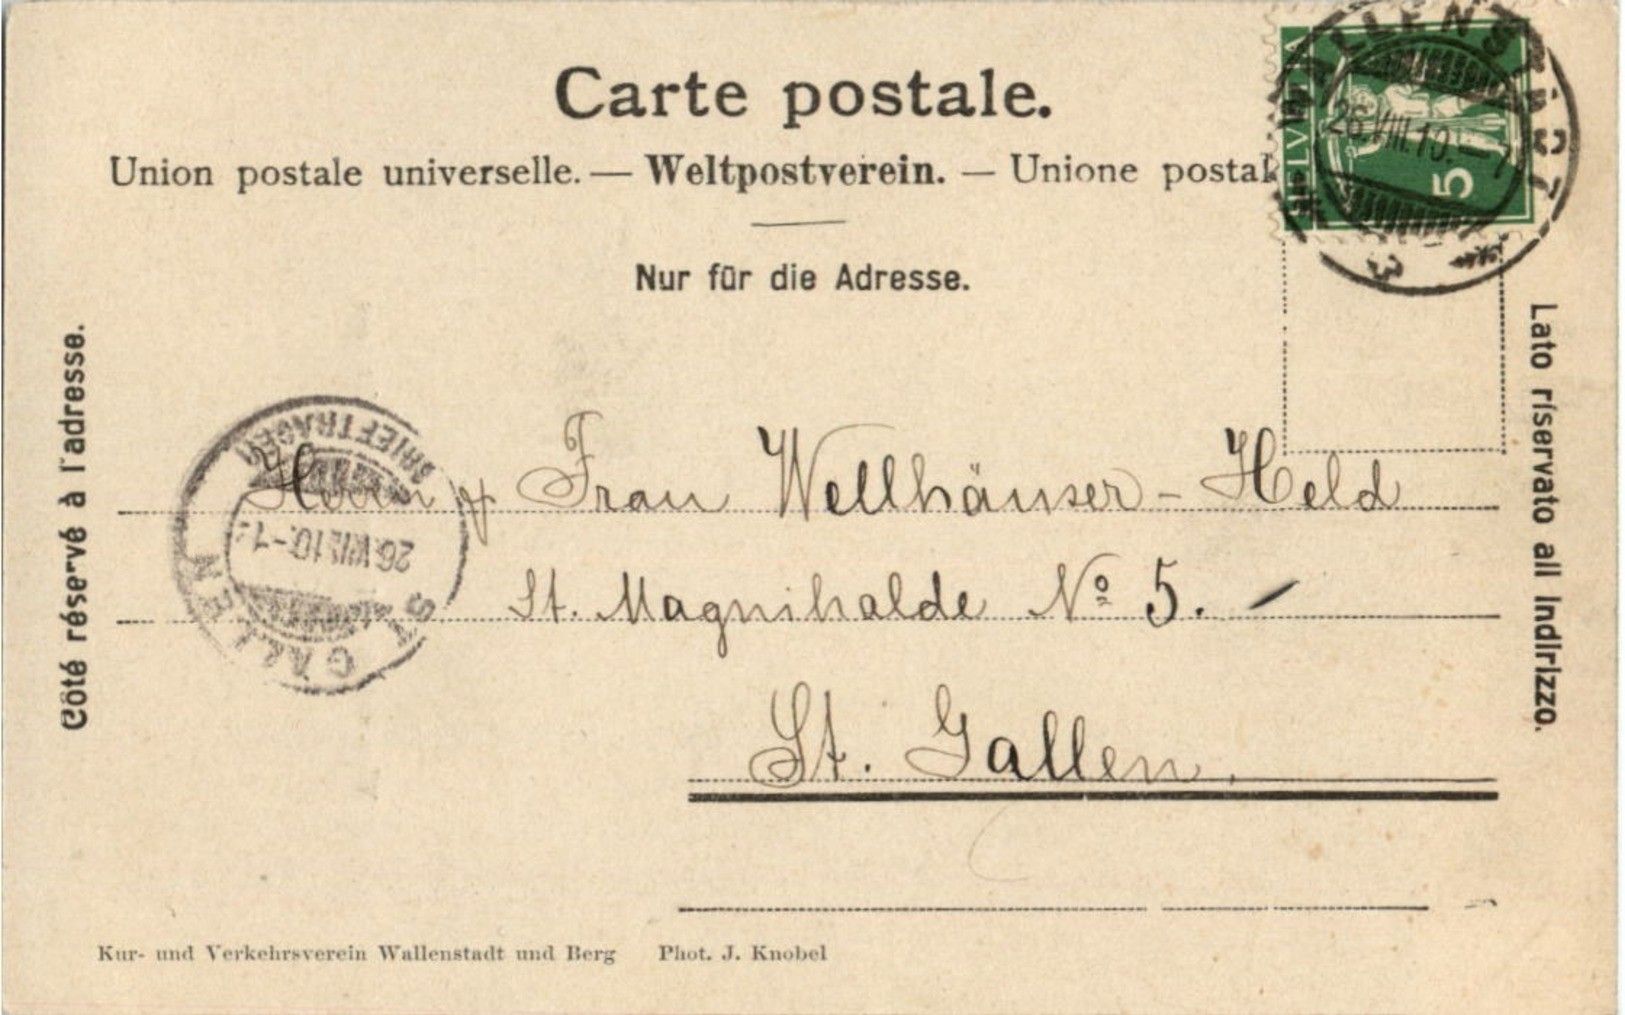 Carte postale.
Union postale universelle. — Weltpostverein. — Unione postal
Nur für die Adresse.
Côté réservé à l'adresse.
Lato riservato all Indirizzo.
HELVETIA
5
WALLENSTADT
26.VIII.10.–7
3
BRIEFTRÄGER
26.VIII.10.-1
ST. GALLEN
Herrn & Frau Wellhäuser - Held
St. Magnihalde No 5.
St. Gallen.
Kur- und Verkehrsverein Wallenstadt und Berg Phot. J. Knobel